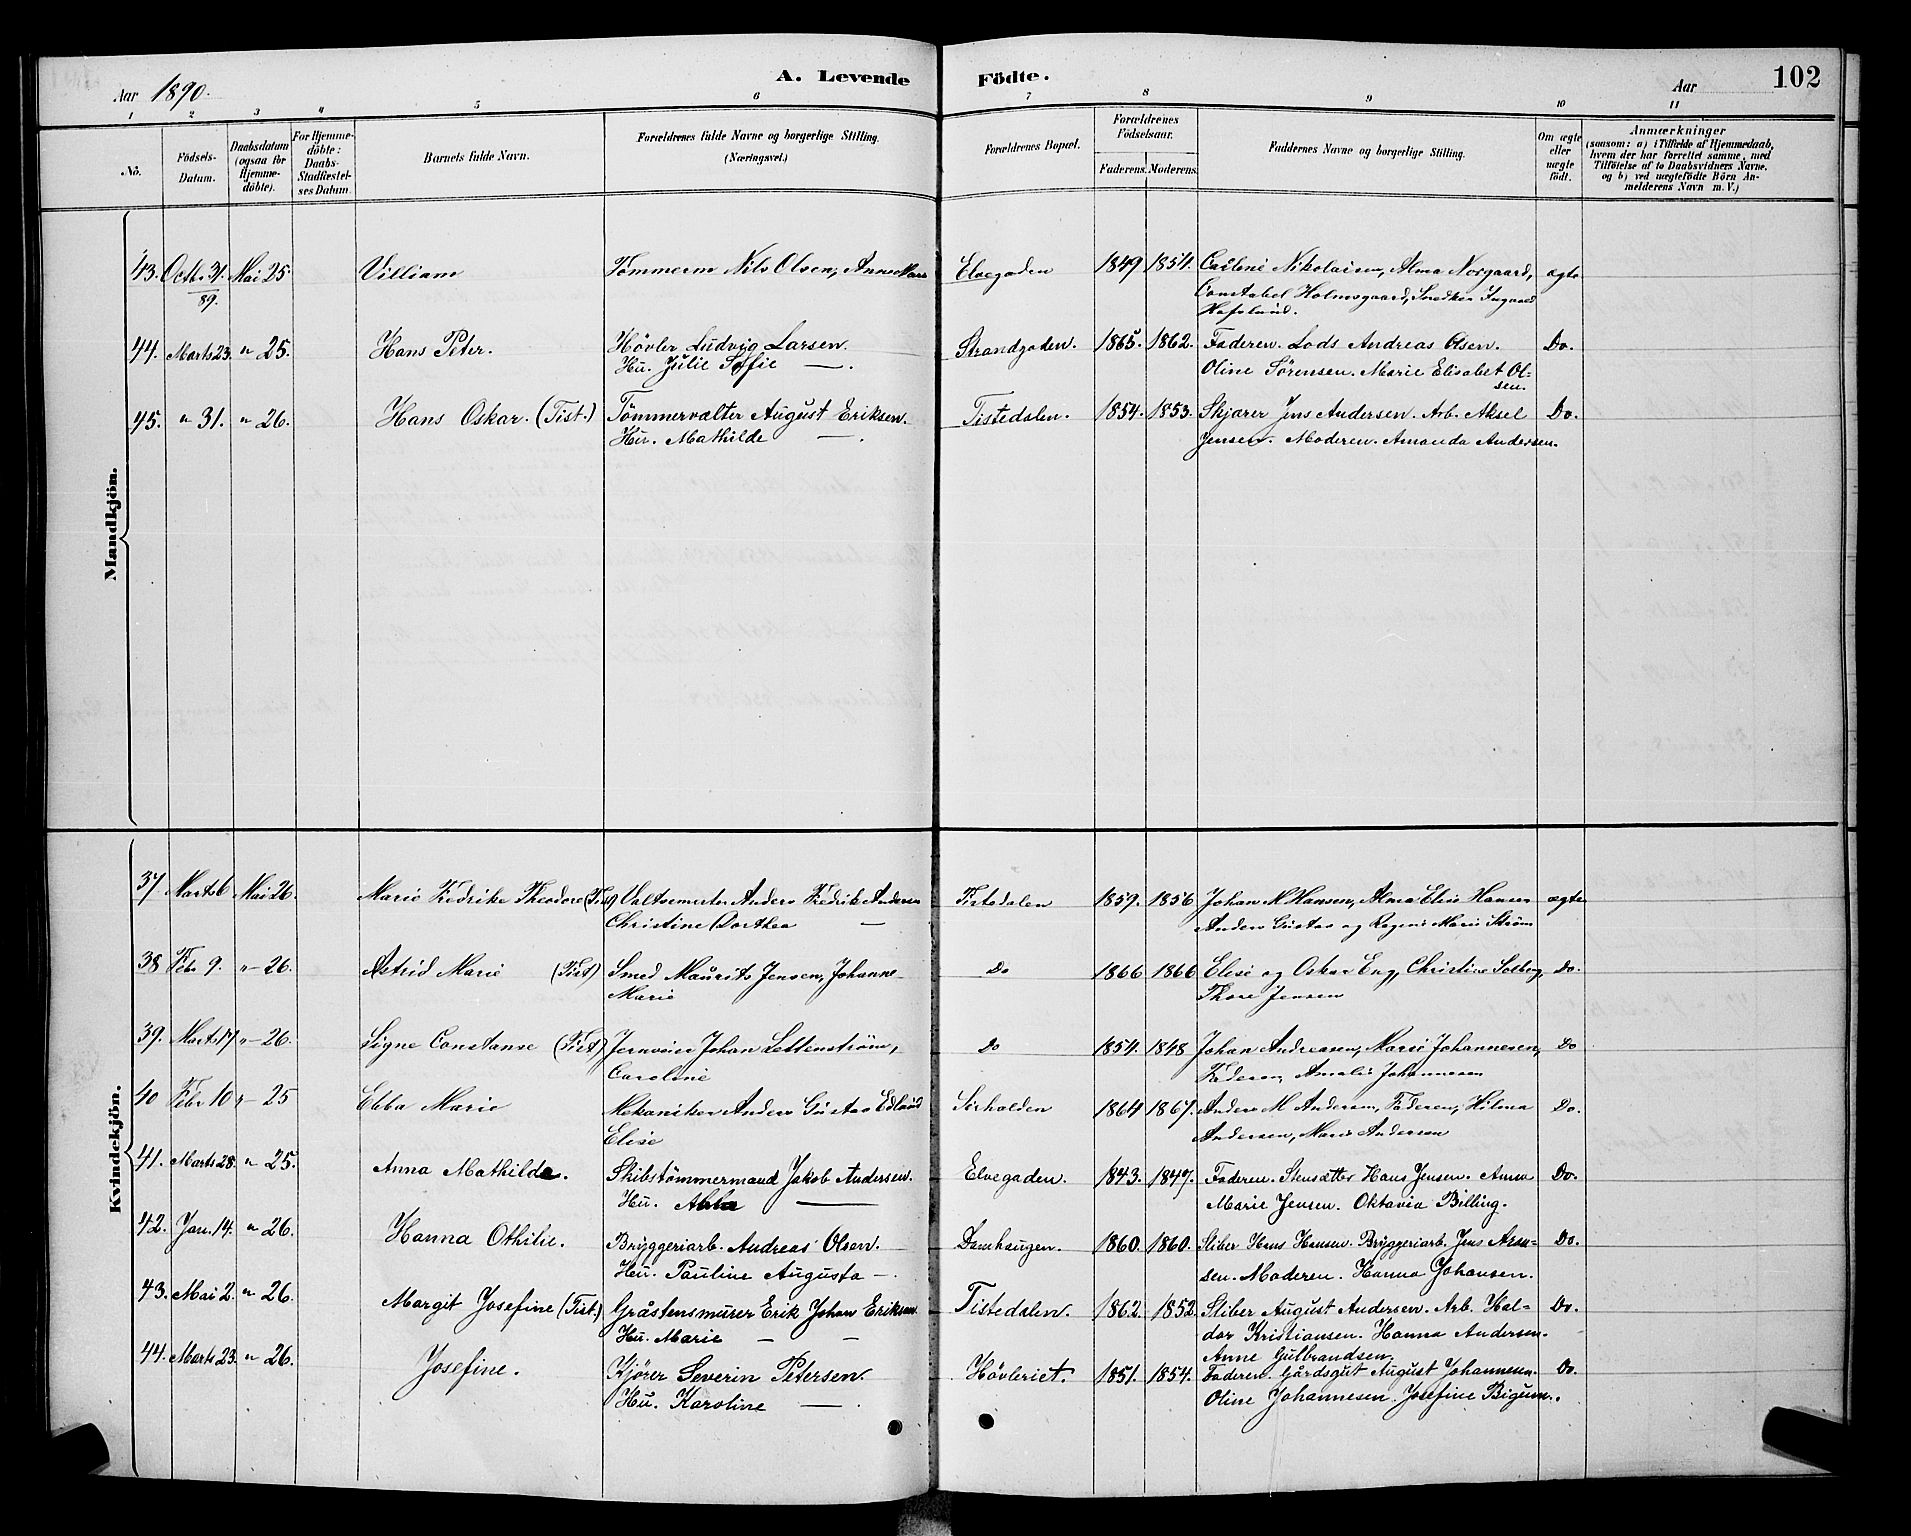 Aar 1890. A. Levende Födte. Aar 102
1 2 3 4 5 6 7 8 9 10 11
No. Födsels-Datum. Daabsdatum (ogsaa for Hjemme-döbte). For Hjemme-döbte: Daabs-Stadfæstel-ses Datum. Barnets fulde Navn. Forældrenes fulde Navne og borgerlige Stilling. (Næringsvei.) Forældrenes Bopæl. Forældrenes Födselsaar. Faderens. Moderens. Faddernes Navne og borgerlige Stilling. Om ægte eller uægte födt. Anmærkninger (saasom: a) i Tilfælde af Hjemmedaab, hvem der har forrettet samme, med Tilföielse af to Daabsvidners Navne, og b) ved uægtefödte Börn An-melderens Navn m. V.)
Mandkjön.
43. Octb. 31. Mai 25. Villiam Tömmerm Nils Olsen, Anne Elvegaden 1849 1854. Nikolaisen, Alma Norgaard, ægte
89. Constabel Holmsgaard, Snedker
Hafslund.
44. Marts 23. " 25. Hans Peter. Hövler Ludvig Larsen. Strandgaden. 1865. 1862. Faderen. Lods Andreas Olsen. Do.
Hu. Julie Sofie — . Oline Sörensen. Marie Elisabet Ol-
sen.
45. " 31. " 26. Hans Oskar. (Tist.) Tömmervælter August Eriksen. Tistedalen. 1854. 1853. Skjærer Jens Andersen. Arb. Aksel Do.
Hu. Mathilde — . Jensen. Moderen. Amanda Andersen.
Kvindekjön.
37 Marts 6 Mai 26. Marie Fredrike Theodore (Tist) Valsemester Anders Fredrik Andersen Tistedalen 1859. 1856 Johan M Hansen, Alma Elise Hansen ægte
Christine Dorthea — Anders Gustav og Marie Ström
38 Febr 9. "- 26. Astrid Marie (Tist) Smed Maurits Jensen, Johanne- Do 1866 1866 Elise og Oskar Eng, Christine Solberg, Do.
Marie Thore Jensen
39. Marts 17 "- 26. Signe Constanse (Tist) Johan Lettenström, Do 1854. 1848 Johan Andreasen, Marie Johannesen, Do
Caroline Faderen, Amalie Johannesen
40 Febr 10 "- 25 Ebba Marie Mekaniker Anders Gustav Edlund 1864 1867. Anders M Andersen, Faderen, Hilma Do.
Elise Andersen, Marie Andersen
41. Marts 28. " 25. Anna Mathilde. Skibstömmermand Jakob Andersen. Elvegaden. 1843. 1847. Faderen. Stensætter Hans Jensen. Anna Do.
Hu. — Marie Jensen. Oktavia Billing.
42. Jan. 14. " 26. Hanna Othilie. Bryggeriarb. Andreas Olsen. Damhaugen. 1860. 1860. Sliber Hans Hansen. Bryggeriarb. Jens Do.
Hu. Pauline Augusta — . sen. Moderen. Hanna Johansen.
43. Mai 2. " 26. Margit Josefine (Tist.) Gråstensmurer Erik Johan Eriksen. Tistedalen. 1862. 1852. Sliber August Andersen. Arb. Hal- Do.
Hu. Marie — — dor Kristiansen. Hanna Andersen.
Anne Gulbrandsen,
44. Marts 23. " 26. Josefine. Kjörer Severin Petersen. Hövleriet. 1851. 1854. Faderen. Gårdsgut August Johannesen. Do.
Hu. Karoline — . Oline Johannesen. Josefine Bigum.